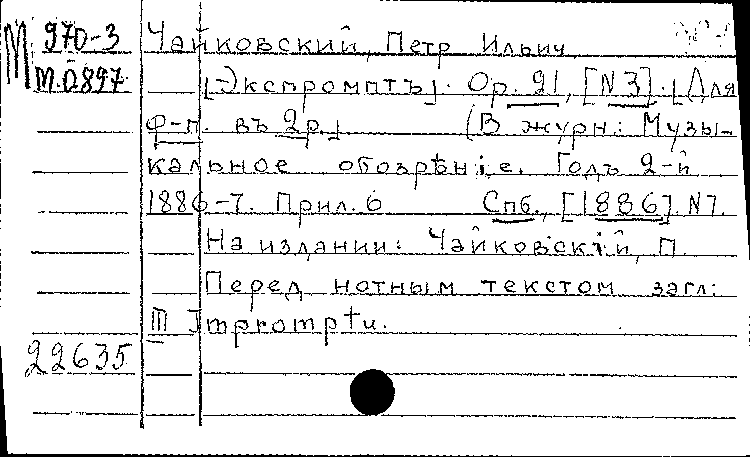 М 970-3 Чайковский, Петр Ильич
М.О897 [Экспромптъ]. Ор. 21, [N 3]. [Для
ф-п. въ 2р.] (В журн: Музы-
кальное обозрѣніе. Годъ 2-й
1886-7. Прил. 6 Спб., [1886]. N7.
На издании: Чайковскій, П.
Перед нотным текстом загл:
III Impromptu.
22635